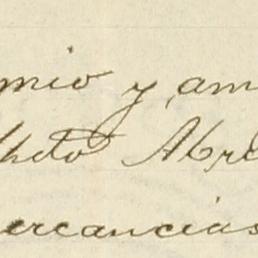 mio y, am
cheto Abre
ercancias